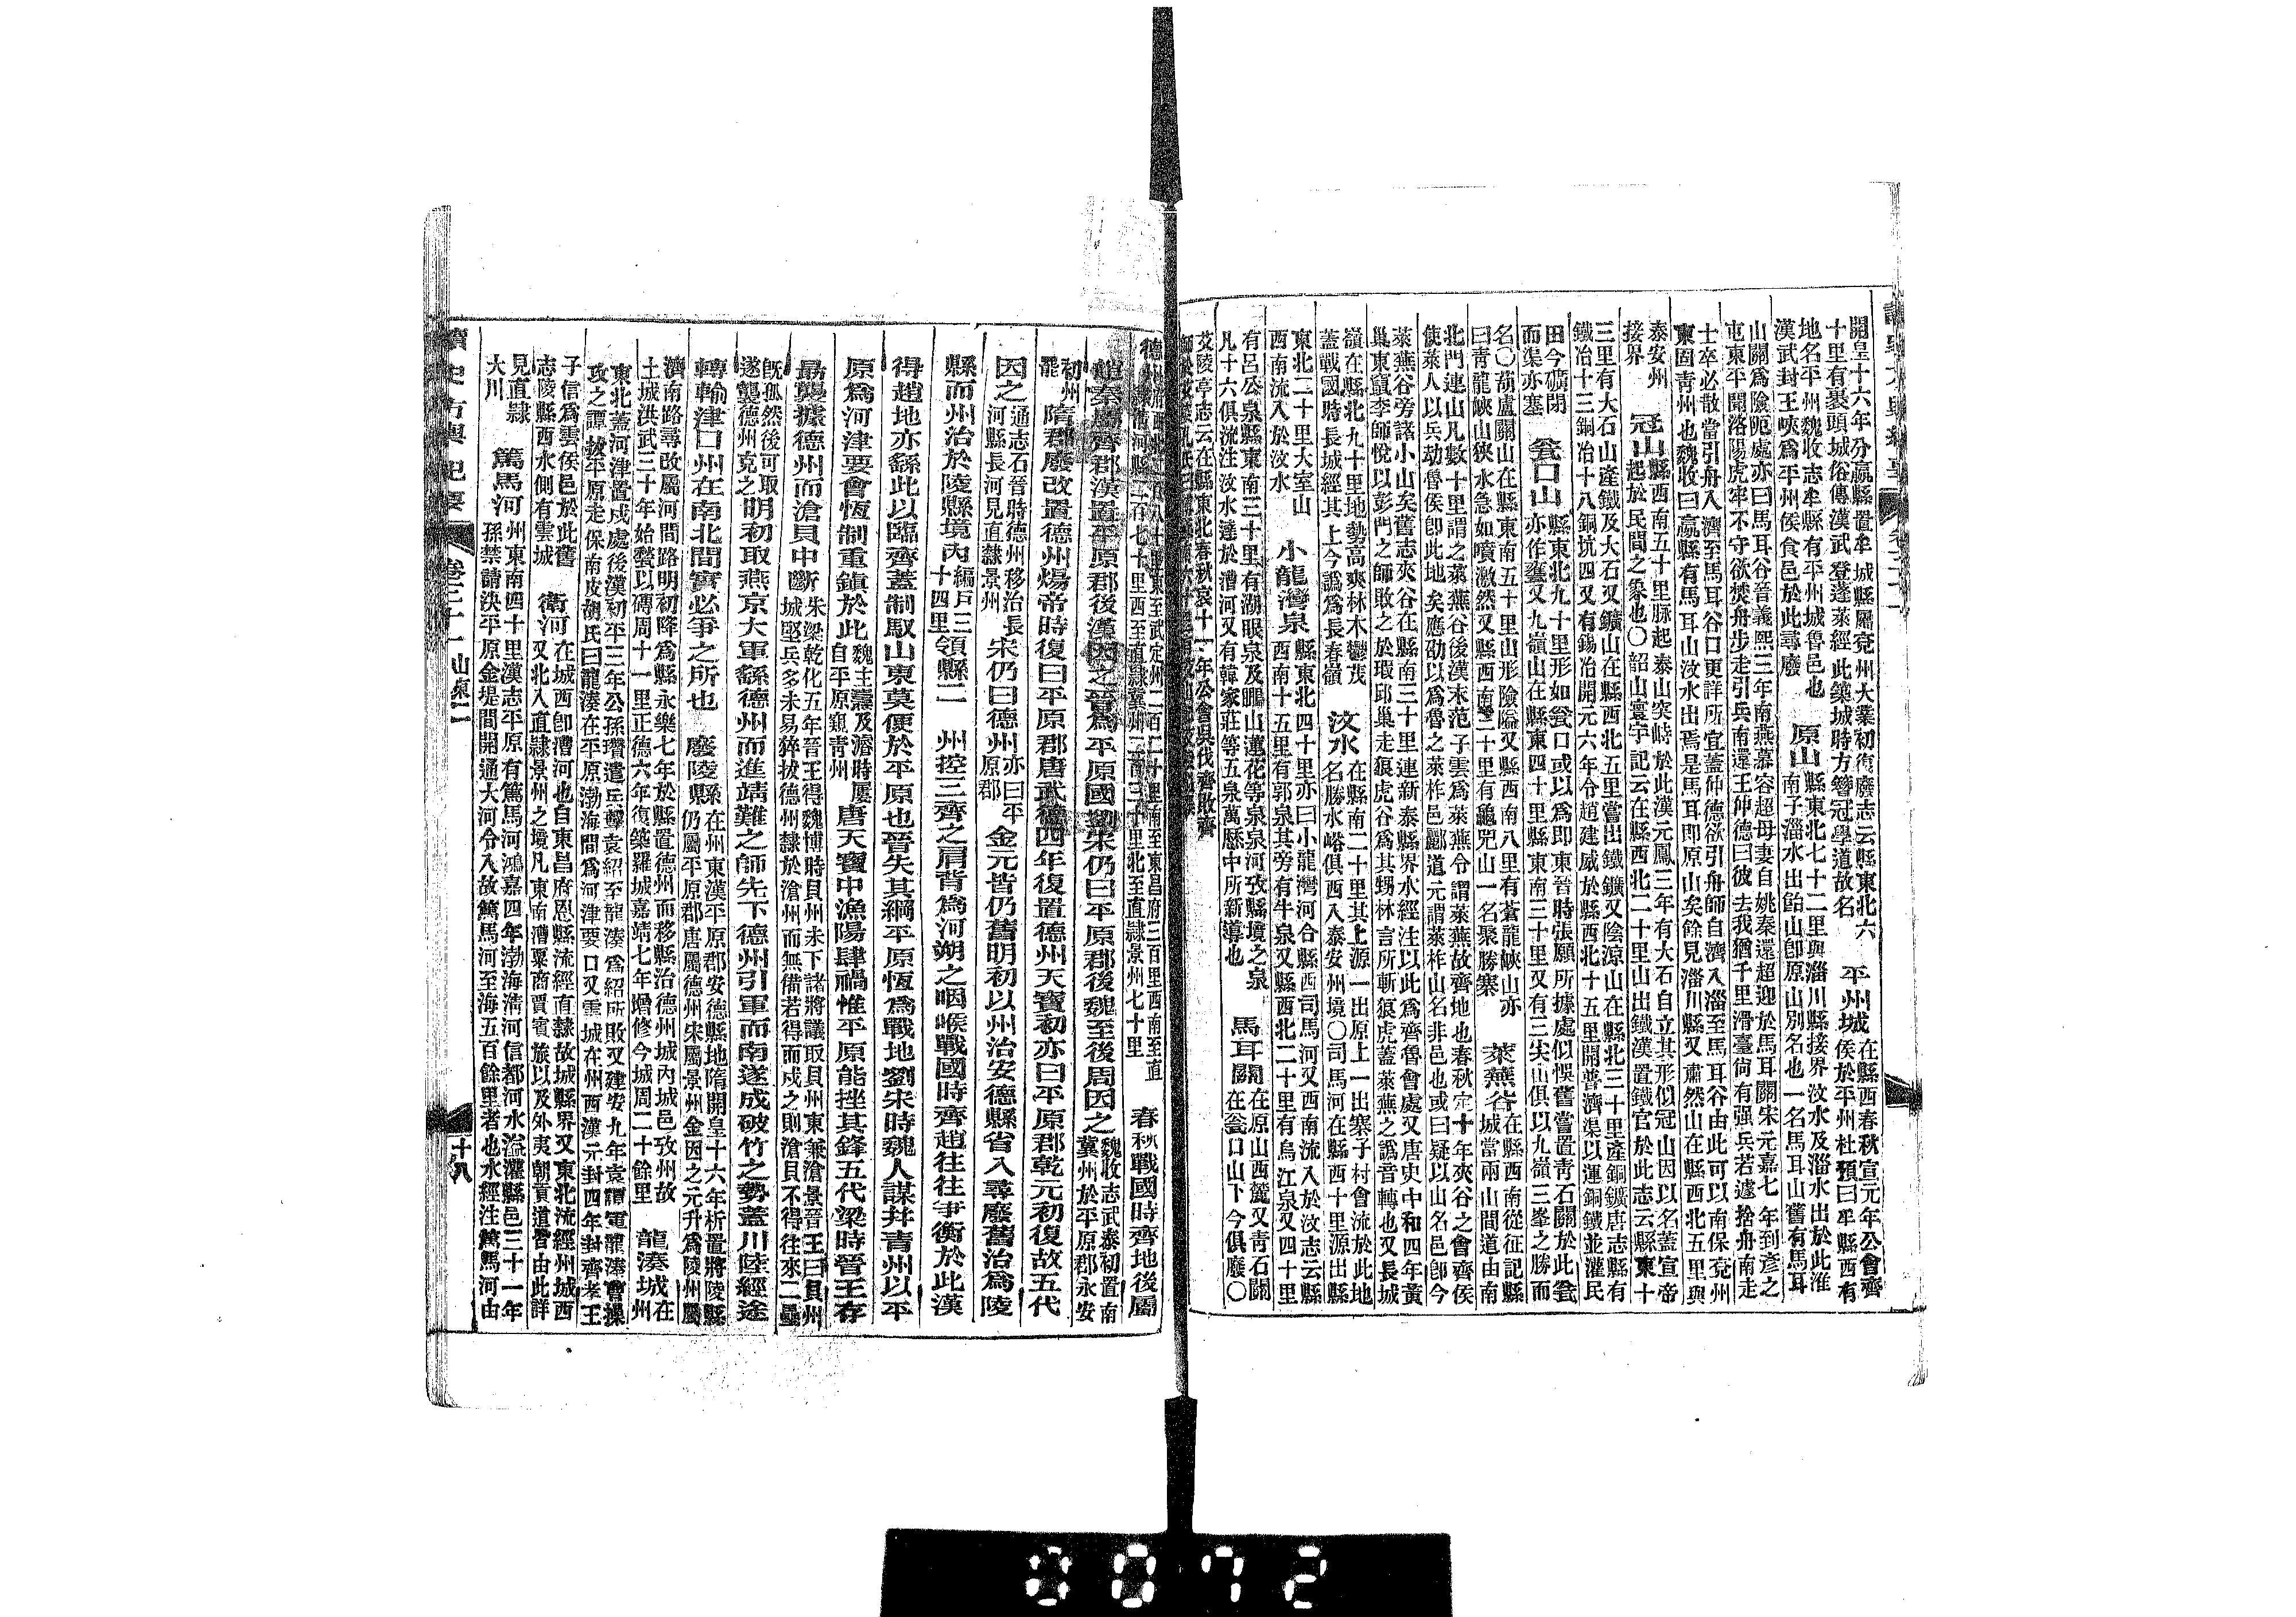 開皇十六年分嬴縣置牟城縣屬兗州大業初復廢志云縣東北六
十里有裹頭城俗傳漢武登蓬萊經此築城時方簪冠學道故名
平州城
在縣西春秋宣元年公會齊
侯於平州杜預曰平縣西有
地名平州魏收志牟縣有平州城魯邑也
漢武封王峽爲平州侯食邑於此尋廢
原山
縣東北七十二里與淄川縣接界汶水及淄水出於此淮
南子淄水出飴山卽原山別名也一名馬耳山舊有馬耳
山關爲險阨處亦曰馬耳谷晉義熙三年南燕慕容超母妻自姚秦還超迎於馬耳關宋元嘉七年到彥之
屯東平聞洛陽虎牢不守欲焚舟步走引兵南還王仲德曰彼去我猶千里滑臺尙有强兵若遽捨舟南走
士卒必散當引舟入濟至馬耳谷口更詳所宜蓋仲德欲引舟師自濟入淄至馬耳谷由此可以南保兗州
東固靑州也魏收曰嬴縣有馬耳山汶水出焉是馬耳卽原山矣餘見淄川縣又肅然山在縣西北五里與
泰安州
接界
冠山
縣西南五十里脉起泰山突峙於此漢元鳳三年有大石自立其形似冠山因以名蓋宣帝
起於民間之象也〇韶山寰宇記云在縣西北二十里山出鐵漢置鐵官於此志云縣東十
三里有大石山產鐵及大石又鑛山在縣西北五里嘗出鐵鑛又陰涼山在縣北三十里產銅鑛唐志縣有
鐵冶十三銅冶十八銅坑四又有錫冶開元六年令趙建威於縣西北十五里開普濟渠以運銅鐵並灌民
田今礦閉
而渠亦塞
瓮口山
縣東北九十里形如瓮口或以爲即東晉時張願所據處似悞舊嘗置靑石關於此瓮
亦作甕又九嶺山在縣東四十里縣東南三十里又有三尖山俱以九嶺三峯之勝而
名〇葫蘆關山在縣東南五十里山形險隘又縣西南八里有蒼龍峽山亦
曰靑龍峽山狹水急如噴激然又縣西南二十里有龜兕山一名聚勝寨
萊蕪谷
在縣西南從征記縣
城當兩山間道由南
北門連山凡數十里謂之萊蕪谷後漢末范子雲爲萊蕪令謂萊蕪故齊地也春秋定十年夾谷之會齊侯
使萊人以兵劫魯侯卽此地矣應劭以爲魯之萊柞邑酈道元謂萊柞山名非邑也或曰疑以山名邑卽今
萊蕪谷旁諸小山矣舊志夾谷在縣南三十里連新泰縣界水經注以此爲齊魯會處又唐史中和四年黃
巢東竄李師悅以彭門之師敗之於瑕邱巢走狼虎谷爲其甥林言所斬狼虎蓋萊蕪之譌音轉也又長城
嶺在縣北九十里地勢高爽林木鬱茂
蓋戰國時長城經其上今譌爲長春嶺
汶水
在縣南二十里其上源一出原上一出寨子村會流於此地
名勝水峪俱西入泰安州境〇司馬河在縣西十里源出縣
東北二十里大室山
西南流入於汶水
小龍灣泉
縣東北四十里亦曰小龍灣河合縣西司馬河又西南流入於汶志云縣
西南十五里有郭泉其旁有牛泉又縣西北二十里有烏江泉又四十里
有呂公泉縣東南三十里有湖眼泉及鵬山蓮花等泉泉河攷縣境之泉
凡十六俱流注汶水達於漕河又有韓家莊等五泉萬歷中所新導也
馬耳關
在原山西麓又靑石關
在瓮口山下今俱廢〇
艾陵亭志云在縣東北春秋哀十一年公會吳伐齊敗齊
德州
春秋戰國時齊地後屬
趙秦屬齊郡漢置平原郡後漢因之晉爲平原國劉宋仍曰平原郡後魏至後周因之
魏收志武泰初置南
冀州於平原郡永安
初州
罷
隋郡廢改置德州煬帝時復曰平原郡唐武德四年復置德州天寶初亦曰平原郡乾元初復故五代
因之
通志石晉時德州移治長
河縣長河見直隸景州
宋仍曰德州
亦曰平
原郡
金元皆仍舊明初以州治安德縣省入尋廢舊治爲陵
縣而州治於陵縣境內
編戶三
十四里
領縣二
州控三齊之肩背爲河朔之咽喉戰國時齊趙往往爭衡於此漢
得趙地亦繇此以臨齊蓋制馭山東莫便於平原也晉失其綱平原恆爲戰地劉宋時魏人謀幷青州以平
原爲河津要會恆制重鎮於此
魏主燾及濬時屢
自平原窺青州
唐天寶中漁陽肆禍惟平原能挫其鋒五代梁時晉王存
勗襲據德州而滄貝中斷
朱梁乾化五年晉王得魏博時貝州未下諸將議取貝州東兼滄景晉王曰貝州
城堅兵多未易猝拔德州隸於滄州而無備若得而戍之則滄貝不得往來二壘
旣孤然後可取
遂襲德州克之
明初取燕京大軍繇德州而進靖難之師先下德州引軍而南遂成破竹之勢蓋川陸經途
轉輸津口州在南北間實必爭之所也
廢陵縣
在州東漢平原郡安德縣地隋開皇十六年析置將陵縣
仍屬平原郡唐屬德州宋屬景州金因之元升爲陵州屬
濟南路尋改屬河間路明初降爲縣永樂七年於縣置德州而移縣治德州城內城邑攷州故
土城洪武三十年始甃以磚周十一里正德六年復築羅城嘉靖七年增修今城周二十餘里
龍湊城
在州
東北蓋河津置戍處後漢初平三年公孫瓚遣兵擊袁紹至龍湊爲紹所敗又建安九年袁譚軍龍湊曹操
攻之譚拔平原走保南皮胡氏曰龍湊在平原渤海間爲河津要口又雲城在州西漢元封四年封齊孝王
子信爲雲侯邑於此舊
志陵縣西水側有雲城
衞河
在城西卽漕河也自東昌府恩縣流經直隸故城縣界又東北流經州城西
又北入直隸景州之境凡東南漕粟商賈賓旅以及外夷朝貢道皆由此詳
見直隸
大川
篤馬河
州東南四十里漢志平原有篤馬河鴻嘉四年渤海淸河信都河水溢灌縣邑三十一年
孫禁請決平原金堤間開通大河令入故篤馬河至海五百餘里者也水經注篤馬河由
讀史方輿紀要
卷三十一 山東二
十八
0072